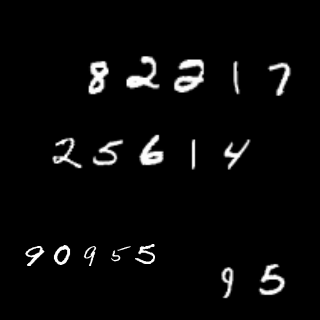 82217
25614
90955
95